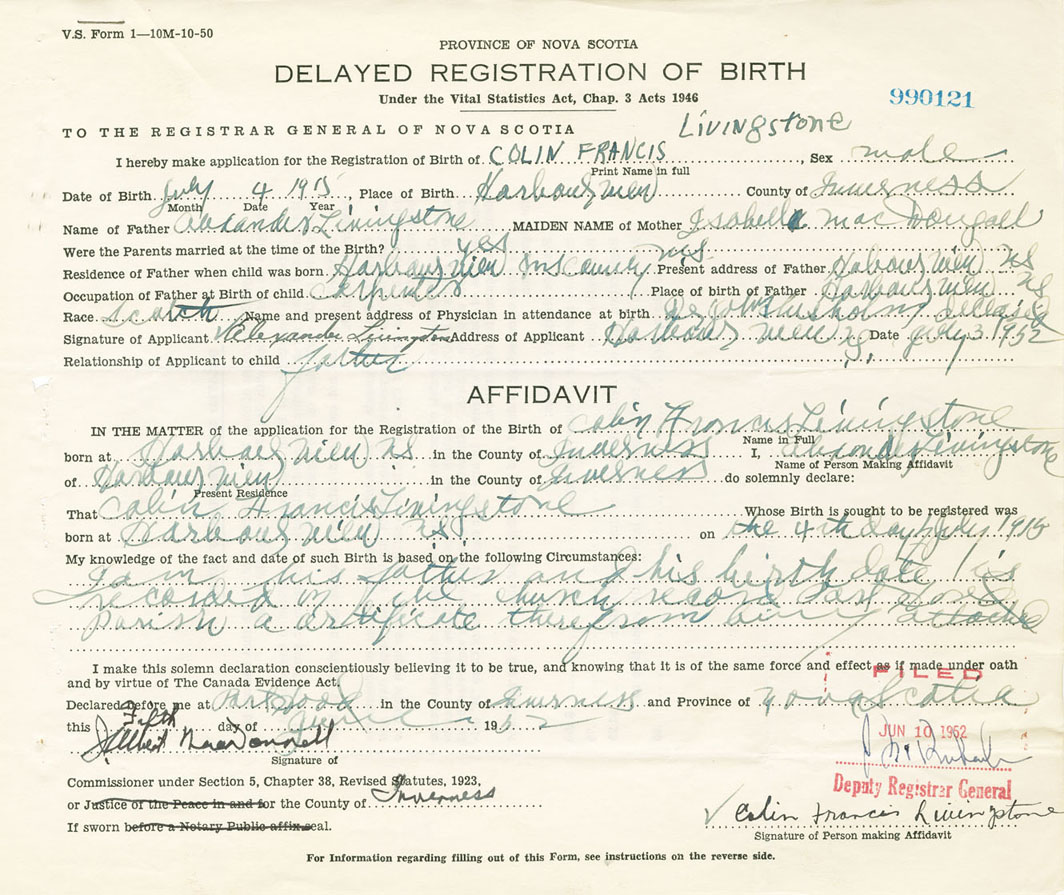 V.S. Form 1—10M-10-50
PROVINCE OF NOVA SCOTIA
DELAYED REGISTRATION OF BIRTH
Under the Vital Statistics Act, Chap. 3 Acts 1946
990121
TO THE REGISTRAR GENERAL OF NOVA SCOTIA
Livingstone
I hereby make application for the Registration of Birth of COLIN FRANCIS, Sex male
Print Name in full
Date of Birth July 4 1915, Place of Birth Harbourview County of Inverness
Month Date Year
Name of Father Alexander Livingstone MAIDEN NAME of Mother Isabella MacDougall
Were the Parents married at the time of the Birth? yes
Residence of Father when child was born Harbourview Inv County NS Present address of Father Harbourview NS
Occupation of Father at Birth of child Carpenter Place of birth of Father Harbourview NS
Race Scotch Name and present address of Physician in attendance at birth deceased
Signature of Applicant Alexander Livingstone Address of Applicant Harbourview N.S. Date 3 1952
Relationship of Applicant to child father
AFFIDAVIT
IN THE MATTER of the application for the Registration of the Birth of Colin Francis Livingstone
Name in Full
born at Harbourview NS in the County of Inverness I, Alexander Livingstone
Name of Person Making Affidavit
of Harbourview in the County of Inverness do solemnly declare:
Present Residence
That Colin Francis Livingstone Whose Birth is sought to be registered was
born at Harbourview NS on the 4th day July 1915
My knowledge of the fact and date of such Birth is based on the following Circumstances:
I am his father and his birth date is
recorded in the church record
Parish a certificate therefrom being attached
I make this solemn declaration conscientiously believing it to be true, and knowing that it is of the same force and effect as if made under oath
and by virtue of The Canada Evidence Act.
FILED
Declared before me at Port Hood in the County of Inverness and Province of Nova Scotia
this Fifth day of June 1952
JUN 10 1952
J. Albert MacDonnell
Signature of
Deputy Registrar General
Commissioner under Section 5, Chapter 38, Revised Statutes, 1923,
or Justice of the Peace in and for the County of Inverness
Colin Francis Livingstone
If sworn before a Notary Public affix seal.
Signature of Person making Affidavit
For Information regarding filling out of this Form, see instructions on the reverse side.